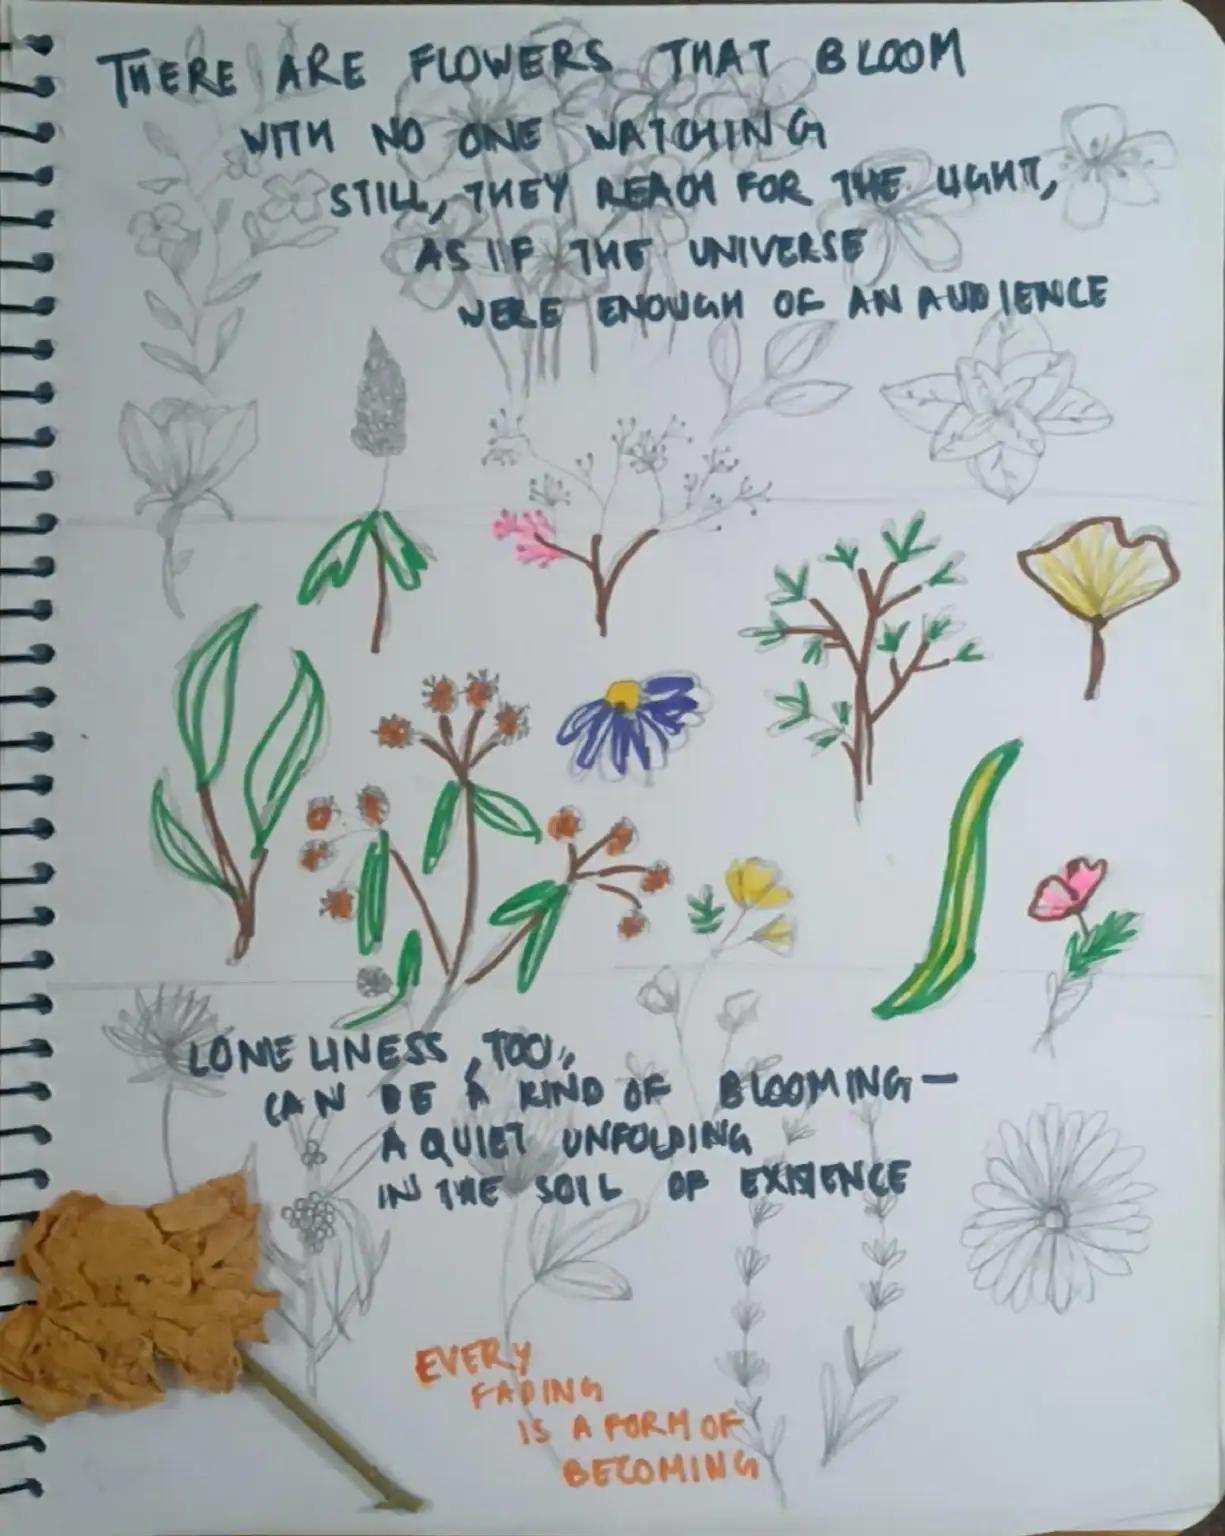 THERE ARE FLOWERS THAT BLOOM
WITH NO ONE WATCHING
STILL, THEY REACH FOR THE LIGHT,
AS IF THE UNIVERSE
WERE ENOUGH OF AN AUDIENCE
LONELINESS, TOO,
CAN BE A KIND OF BLOOMING—
A QUIET UNFOLDING
IN THE SOIL OF EXISTENCE
EVERY
FADING
IS A FORM OF
BECOMING